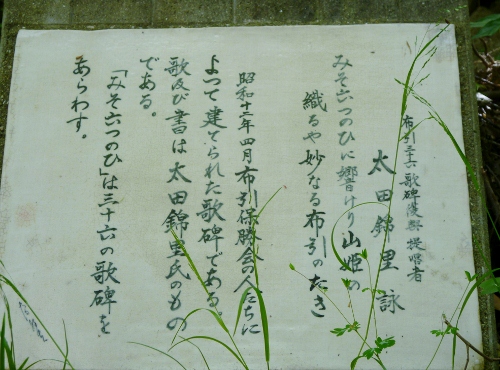 布引三十六歌碑復興提唱者
太田錦里詠
みそ六つのひに響けり山姫の
織るや妙なる布引のたき
昭和十二年四月布引保勝会の人たちに
よつて建てられた歌碑である
歌及び書は太田錦里氏のもの
である。
「みそ六つのひ」は三十六の歌碑を
あらわす。